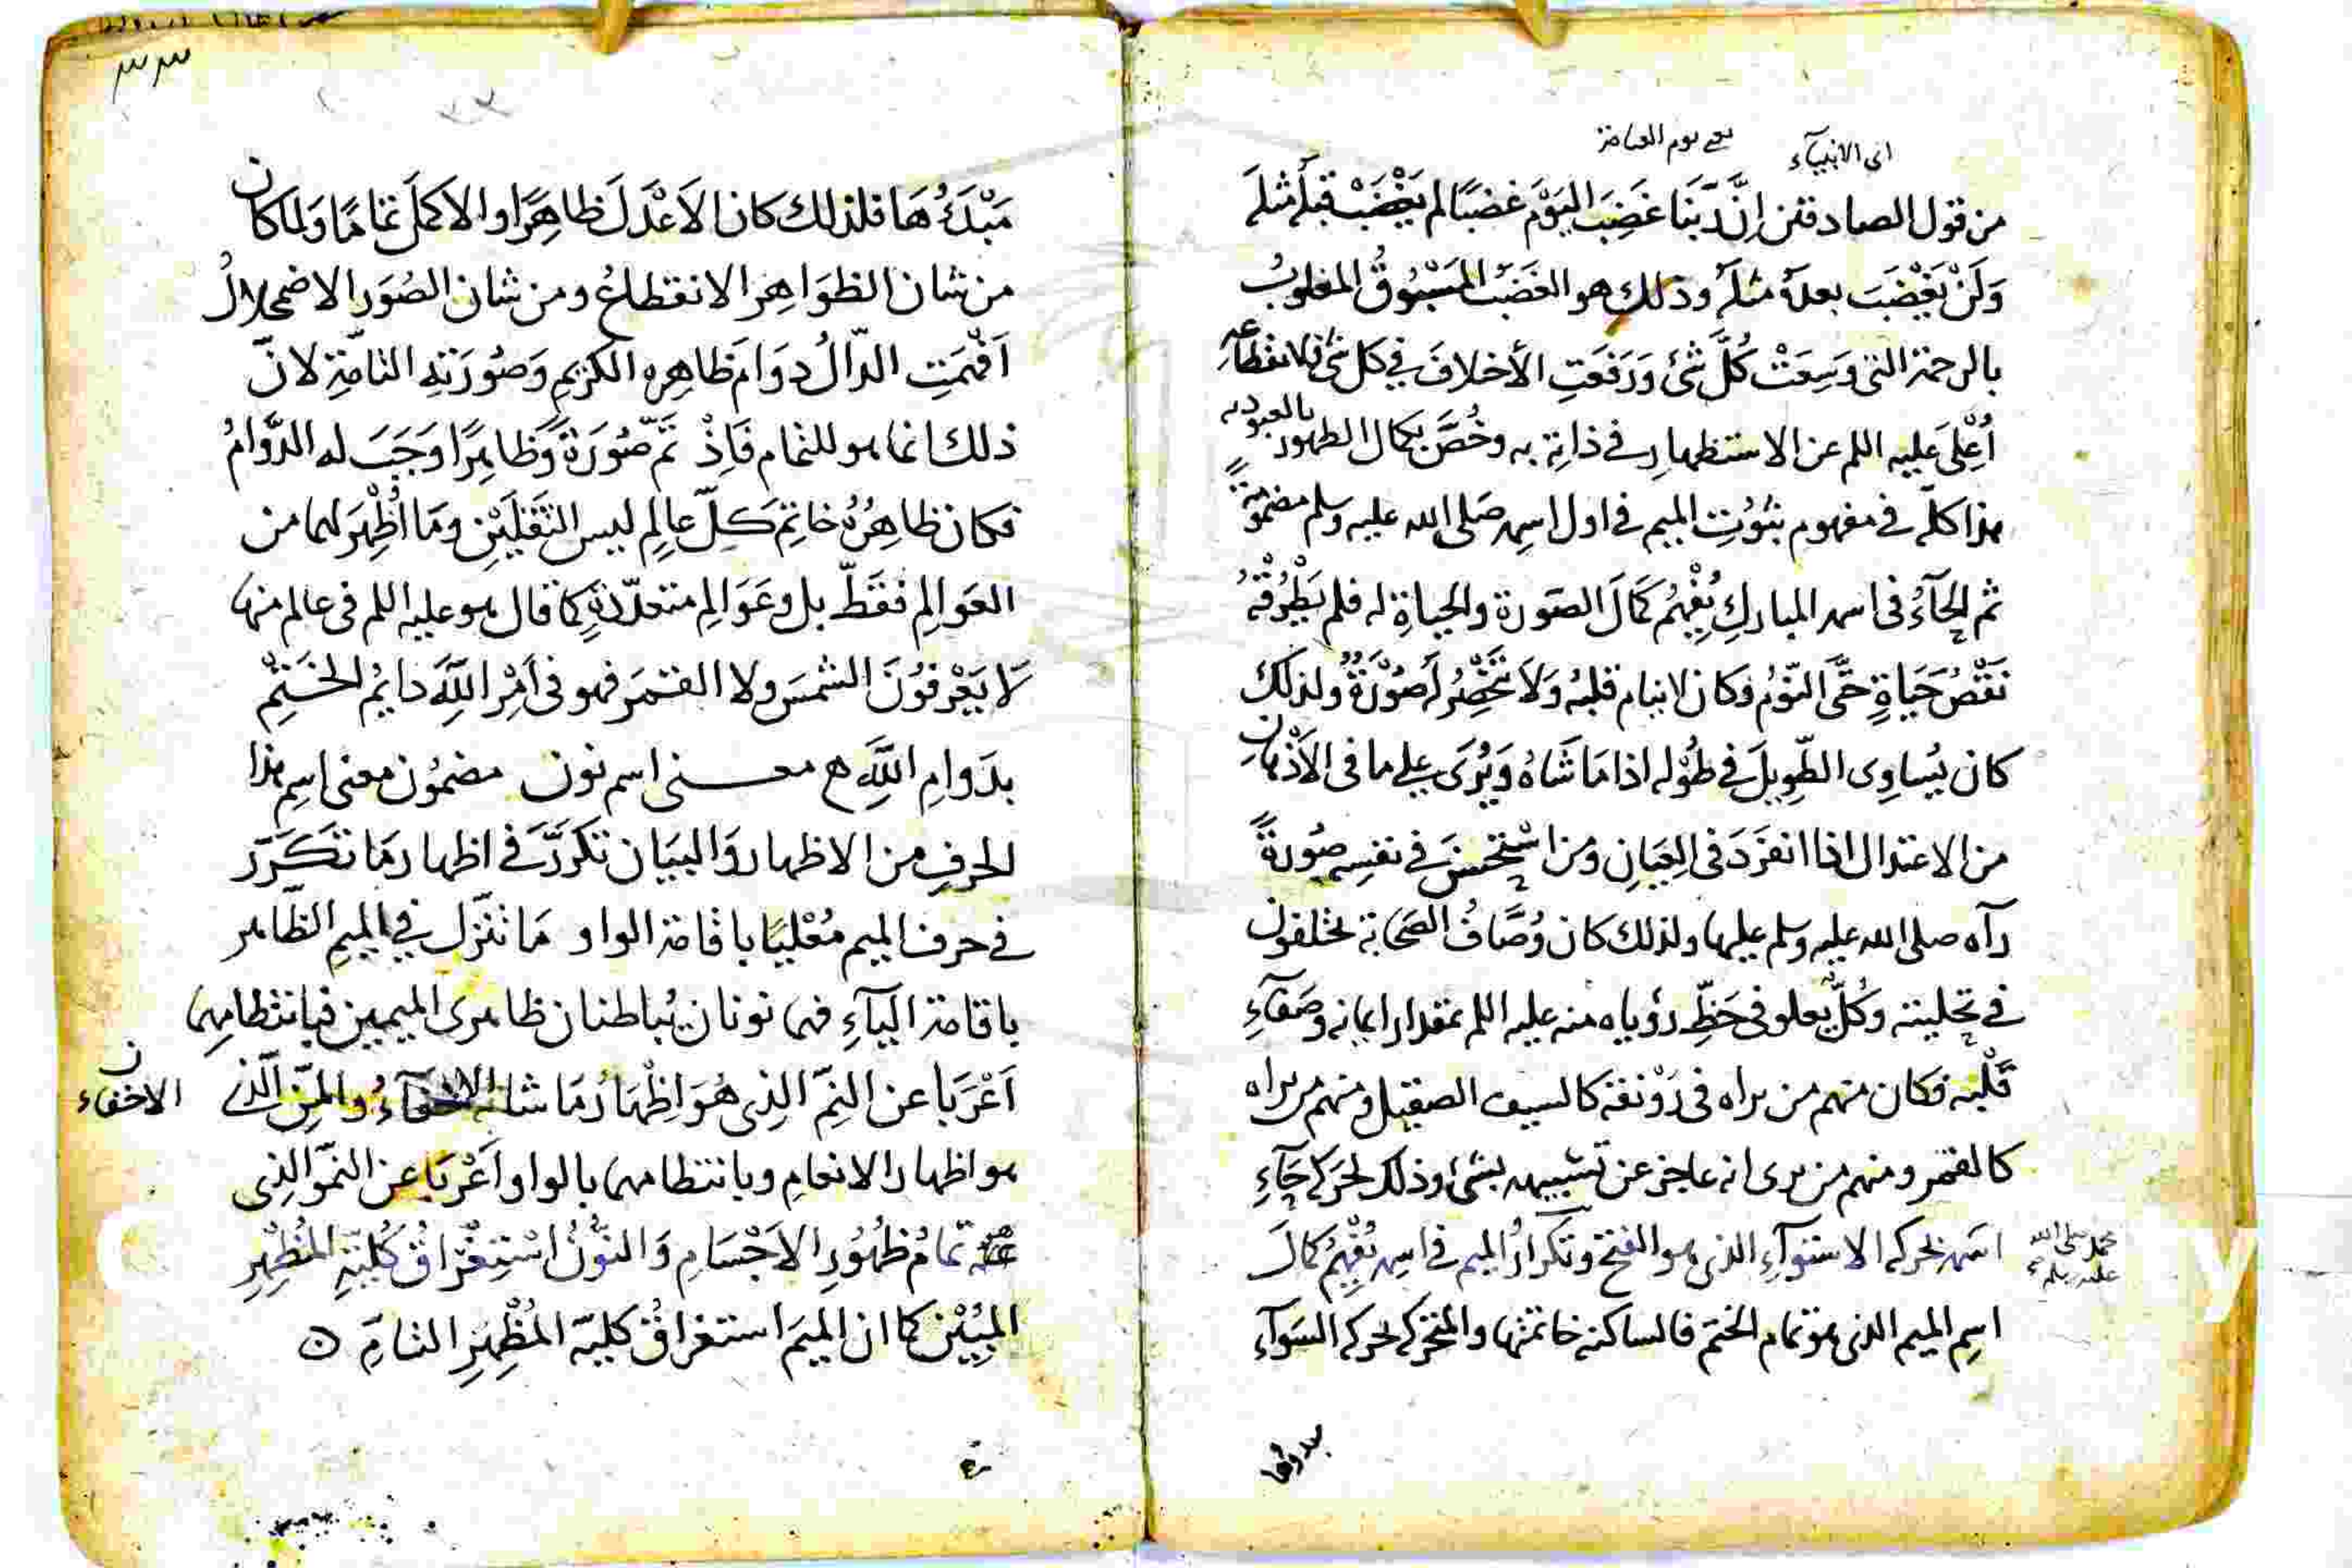 اى الانبيآء
يعنى يوم القيامة
من قول الصادقين اِنَّ رَبَّنَا غَضِبَ اليَوْمَ غَضَبًا لم يَغْضَبْ قبلَهُ مثلَهُ
وَلَنْ يَغْضَبَ بعدَهُ مثلَهُ وذلك هو الغَضَبُ المَسْبُوقُ المغلوبُ
بالرحمة التى وَسِعَتْ كُلَّ شَئ وَرَفَعَتِ الأخلافَ في كل شئ فلانقطاعه
اُعْلِىَ عليه السلم عن الاستظهارِ في ذاتِهِ به وخُصَّ بكمال الظهور بالعبوديه
هذا كلّه في مفهوم ثبُوُتِ الميم في اول اسمِه صَلى الله عليه وسلم مضمومةً
ثم الحآءُ فى اسمه المباركِ يُفْهِمُ كمَالَ الصّورة والحياةِ له فلم يَطْرُقْهُ
نَقْصُ حَيَاةٍ حَتَّى النَّوْمُ فكان لا ينام قلبُه وَلاَ تَنْحَصِرُ لَهُ صُوْرَةٌ ولذلك
كان يُساوِى الطّوِيلَ فى طُوْلِه اذا مَا شَاهُ وَيُرَى على ما فى الأذْهانِ
من الاعتدال اذا انفَرَدَ فى العِيَانِ ومن اسْتَحْسَنَ فى نفسِه صُورةً
رآه صلى الله عليه وسلم عليها ولذلك كان وُصَّافُ الصَّحَابة يختلفون
في تحليته وكُلٌّ يعلو فى حَظِّ رؤياه منه عليه السلم بمقدار ايمانه وصَفَآءِ
قَلْبِه فكان منهم من يراه فى رَوْنقه كالسيف الصقيل ومنهم من يراه
كالقمر ومنهم من يرى انه عاجز عن تشبيهه بشئ وذلك لحَرَكة حَآءِ
اسمه بحركه الاستوآءِ الذى هو الفتح وتكرارُ الميم فى اسمِه يُفْهِمُ كمالَ
محمد صلى الله
عليه وسلم
اسِم الميم الذى هو تمام الختم فالساكنه خاتمتها والمتحركه لحركه السوآءِ
مبدؤها
٣٣
مَبْدَؤُهَا فلذلك كان الأعْدَلَ ظاهِرًا والاكمَلَ تمامًا وَلما كان
من شان الظوَاهِر الانقطاعُ ومن شان الصُوَرِ الاضمحلالُ
اَفْهَمَتِ الدّالُ دوَامَ ظاهِرِه الكريمِ وَصُورَتِهِ التامّةِ لانّ
ذلك انما هو للتمام فَاِذْ تَمَّ صُورَةً وَظاهِرًا وَجَبَ له الدَّوَامُ
فكان ظاهِرُهُ خاتِمَ كلِّ عالِمٍ ليس الثَّقَلَيْنِ ومَا أُظْهِرَ لهما من
العَوالِمِ فقَطْ بل وعَوَالِم متعدّدةٍ كما قال هو عليه السلم فى عالم منها
لا يَعْرفُوُنَ الشمسَ ولا القمَرَ فهو فى اَمْرِ اللَّهِ دايمُ الخَتْمِ
بدَوامِ اللَّهِ ه معنى اسم نون مضمُون معنى اسِم هذا
الحرفِ من الاظهار وَالبيَان تكرَّرَ فى اظهار مَا تكَرَّرَ
فى حرف الميم مُعْليًا باقامة الواو مَا تنَزّل فى الميمِ الظاهر
باقامة اليآءِ فهما نونان يُباطنان ظاهرى الميمين فبانتظامهما
اَعْرَبَا عن النِمِّ الذِى هُوَ اظْهَارُ مَا شانُه الاخفآءُ والمنِّ الّذى
الاخفاء ن
هو اظهار الانعامِ وبانتظامهما بالواو اَعْرَبَا عن النموِّ الذِى
تمامُ ظهُوُرِ الاَجْسَامِ وَالنُّوُنُ اسْتِغْرَاقُ كُليّةِ المُظْهِرِ
المبُيْنِ كما ان الميمَ استغراقُ كليّه المُظْهَرِ التامِّ ۞